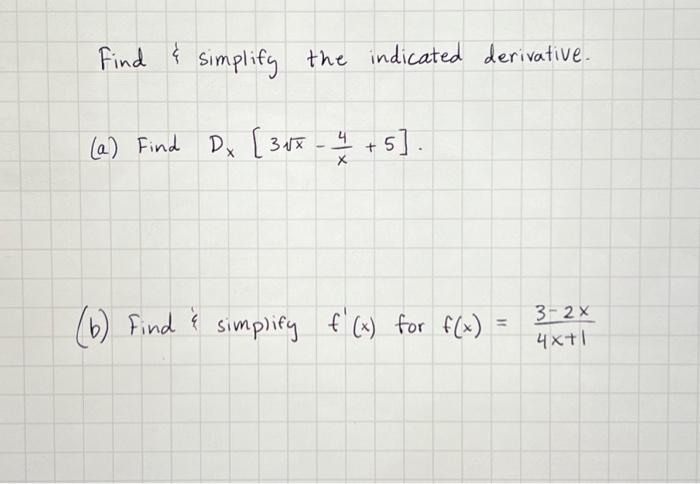 Find & simplify the indicated derivative.
(a) Find Dx [3√x - 4/x + 5].
(b) Find & simplify f'(x) for f(x) = (3-2x)/(4x+1)